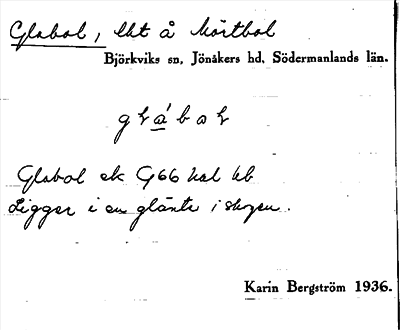 Glabol, lht å Mörtbol
Björkviks sn, Jönåkers hd, Södermanlands län.
Glabol ek G66 kal kb
Ligger i en glänta i skogen.
Karin Bergström 1936.